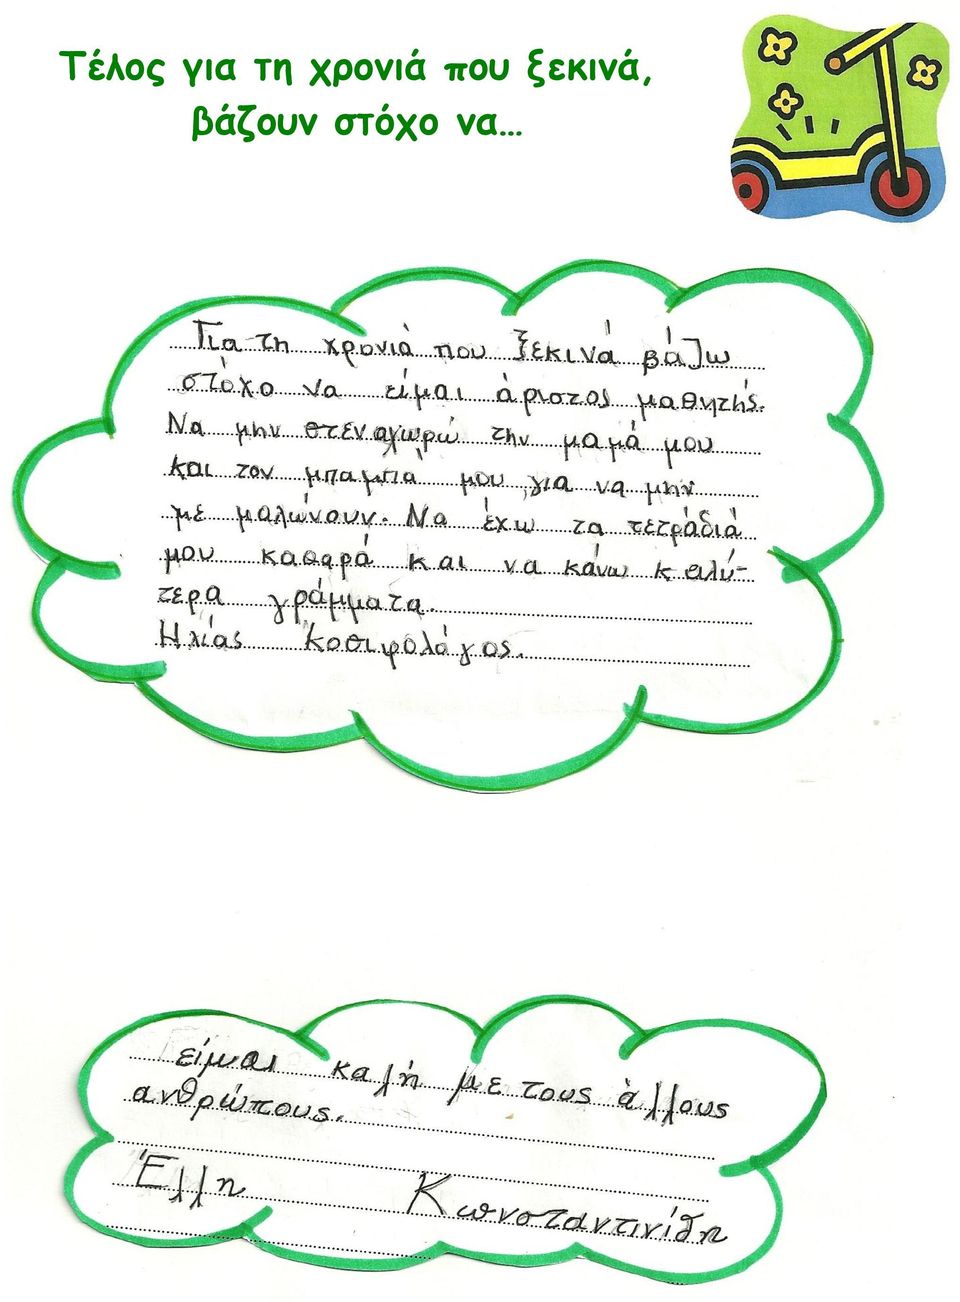 Τέλος για τη χρονιά που ξεκινά,
βάζουν στόχο να...
Για τη χρονιά που ξεκινά βάζω
στόχο να είμαι άριστος μαθητής.
Να μην στεναχωρώ την μαμά μου
και τον μπαμπά μου για να μην
με μαλώνουν. Να έχω τα τετράδιά
μου καθαρά και να κάνω καλύ-
τερα γράμματα.
Ηλίας Κοσιφολόγος.
είμαι καλή με τους άλλους
ανθρώπους.
Έλλη Κωνσταντινίδη